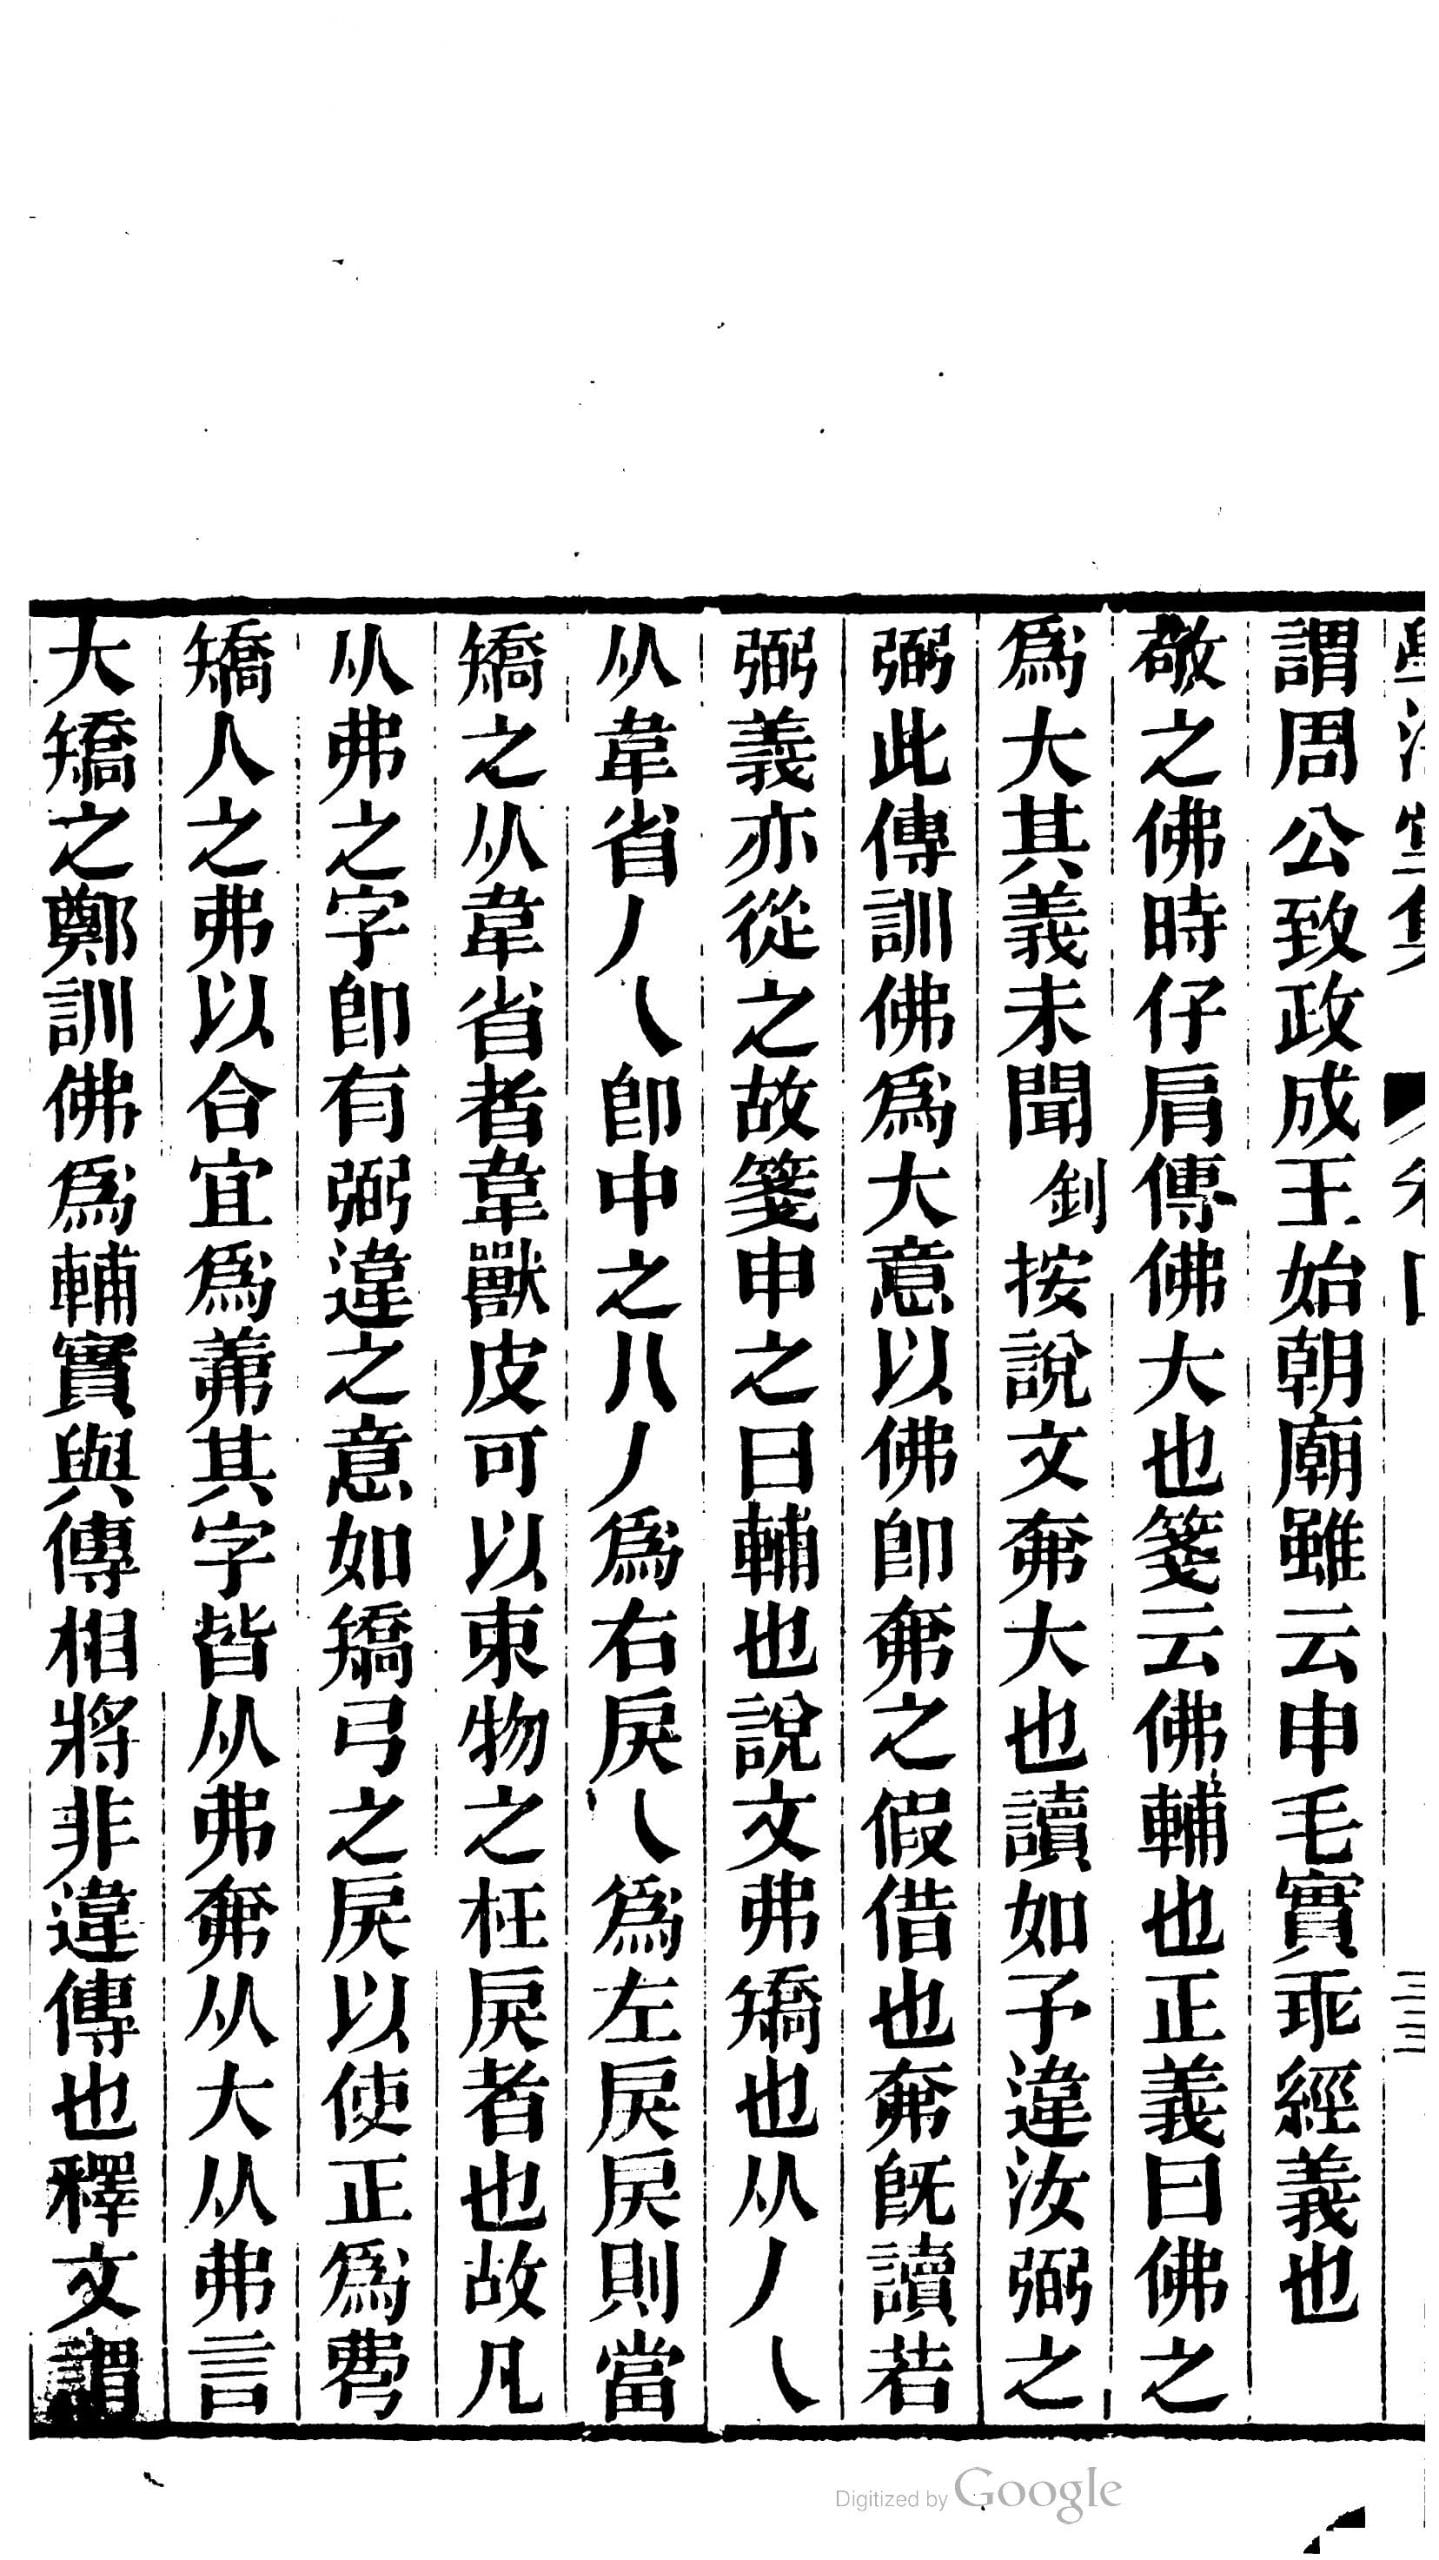 謂周公致政成王始朝廟雖云申毛實乖經義也
敬之佛時仔肩傳佛大也箋云佛輔也正義曰佛之
爲大其義未聞釗按說文㚕大也讀如予違汝弼之
弼此傳訓佛爲大意以佛卽㚕之假借也㚕旣讀若
弼義亦從之故箋申之曰輔也說文弗矯也从丿乀
从韋省丿乀卽中之八丿爲右戾乀爲左戾戾則當
矯之从韋省者韋獸皮可以束物之枉戾者也故凡
从弗之字卽有弼違之意如矯弓之戾以使正爲
矯人之弗以合宜爲羛其字皆从弗㚕从大从弗言
大矯之鄭訓佛爲輔實與傳相將非違傳也釋文謂
Digitized by Google